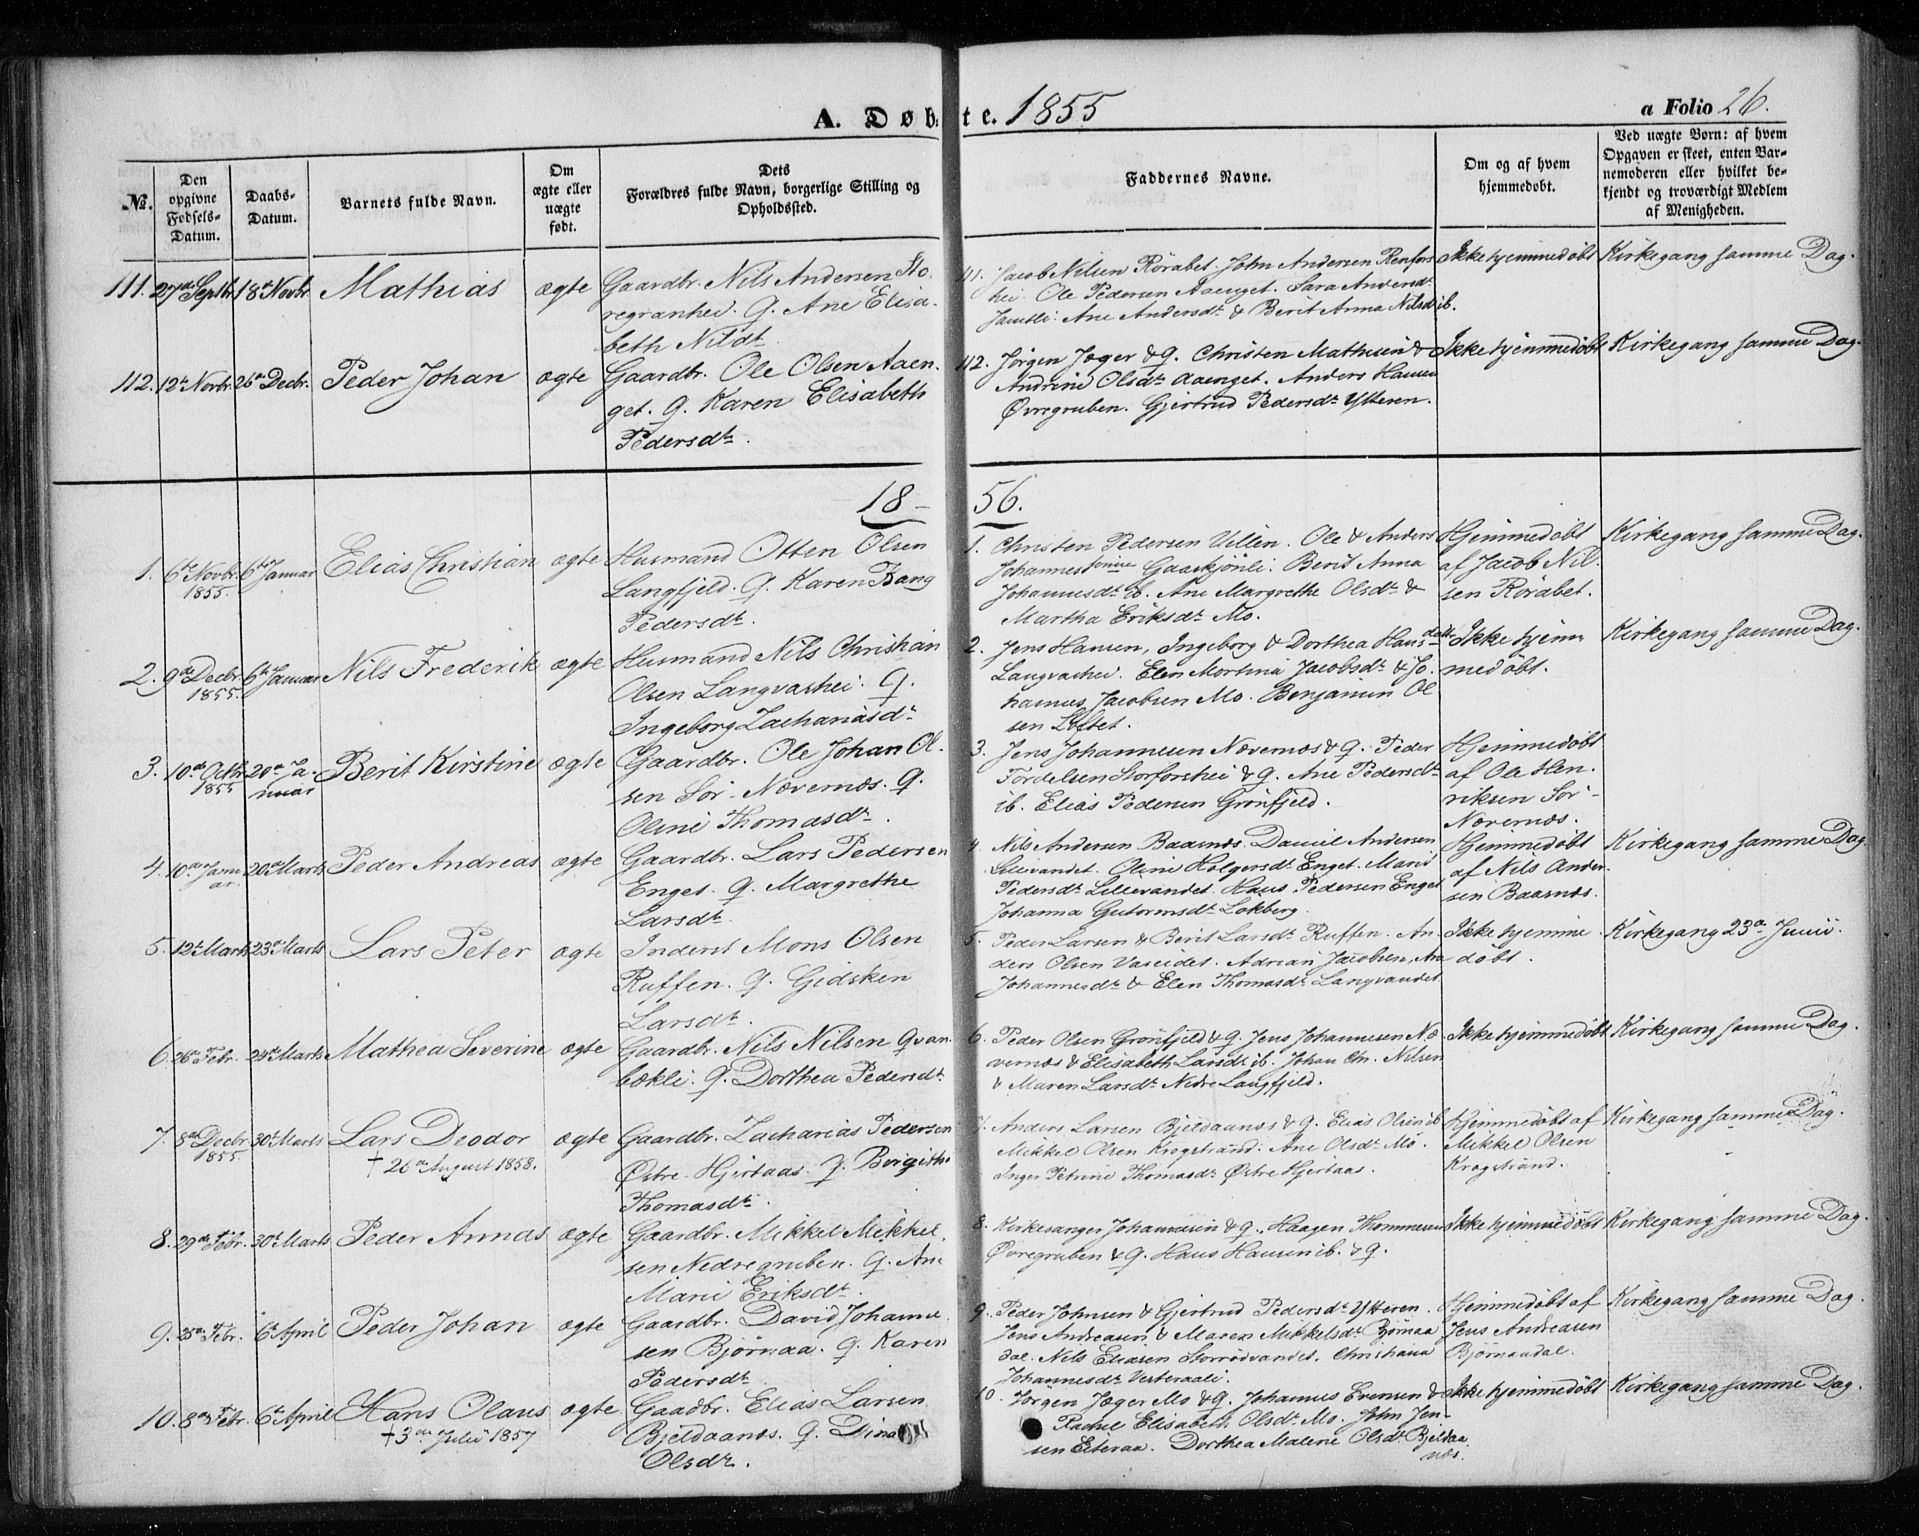 A. Døbte. 1855
a Folio 26.
No.
Den opgivne Fødsels-Datum.
Daabs-Datum.
Barnets fulde Navn.
Om ægte eller uægte født.
Dets Forældres fulde Navn, borgerlige Stilling og Opholdssted.
Faddernes Navne.
Om og af hvem hjemmedøbt.
Ved uægte Børn: af hvem Opgaven er skeet, enten Barnemoderen eller hvilket bekjendt og troværdigt Medlem af Menigheden.
111. 27de Septbr 18de Novbr. Mathias ægte Gaardbr. Nils Andersen Sto-
regranhei. Q. Ane Elisa-
beth Nilsdtr.
111. Jacob Nilsen Rørabet. John Andersen Renfors-
hei. Ole Pedersen Aaenget. Sara Andersdtr
Jamtli. Ane Andersdtr & Berit Anna Nilsdtr ib.
Ikke hjemmedøbt Kirkegang samme Dag.
112. 12te Novbr. 26de Decbr. Peder Johan ægte Gaardbr. Ole Olsen Aaen-
get. Q. Karen Elisabeth
Pedersdtr.
112. Jørgen Jæger & Q. Christen Mathisen &
Andrine Olsdtr Aaenget. Anders Hansen
Øvregruben. Gjertrud Pedersdtr Ytteren.
Ikke hjemmedøbt Kirkegang samme Dag.
18-56.
1. 6te Novbr. 1855. 6te Januar Elias Christian ægte Husmand Otten Olsen
Langfjeld. Q. Karen Bang
Pedersdtr.
1. Christen Pedersen Villen. Ole & Anders
Johannessønner Gaaskjønli. Berit Anna
Johannesdtr ib. Ane Margrethe Olsdtr &
Martha Eriksdtr Mo.
Hjemmedøbt
af Jacob Nil-
sen Rørabet.
Kirkegang samme Dag.
2. 9de Decbr. 1855. 6te Januar Nils Frederik ægte Husmand Nils Christian
Olsen Langvashei. Q.
Ingeborg Zachariasdtr
2. Jens Hansen, Ingeborg & Dorthea Hansdøttr
Langvashei. Elen Mortina Jacobsdtr & Jo-
hannes Jacobsen Mo. Benjamin Ol-
sen Løftet.
Ikke hjem-
medøbt.
Kirkegang samme Dag.
3. 10de Octbr. 1855 20de Ja-
nuar Berit Kirstine ægte Gaardbr. Ole Johan Ol-
sen Sør-Nævernæs. Q.
Oline Thomasdtr.
3. Jens Johannesen Nævernæs & Q. Peder
Fordelsen Storforshei & Q. Ane Pedersdtr
ib. Elias Pedersen Grønfjeld.
Hjemmedøbt
af Ole Hen-
riksen Sør-
Nævernæs.
4. 10de Janu-
ar. 20de Marts Peder Andreas ægte Gaardbr. Lars Pedersen
Enget. Q. Margrethe
Larsdtr.
4. Nils Andersen Baasnæs. Daniel Andersen
Lillevandet. Oline Holgersdtr Enget. Marit
Pedersdtr Lillevandet. Hans Pedersen Enget
Johanna Gutormsdtr Løkberg.
Hjemmedøbt
af Nils Ander-
sen Baasnæs.
Kirkegang samme Dag
5. 12te Marts 23de Marts Lars Peter ægte Inderst Mons Olsen
Ruffen. Q. Gidsken
Larsdtr.
5. Peder Larsen & Berit Larsdtr Ruffen. An-
ders Olsen Vaseidet. Adrian Jacobsen, Ane
Johannesdtr & Elen Thomasdtr Langvandet
Ikke hjemme-
døbt.
Kirkegang 23de Junii.
6. 26de Febr. 24de Marts Mathea Severine ægte Gaardbr. Nils Nilsen Qvan-
bækli. Q. Dorthea Pedersdtr.
6. Peder Olsen Grønfjeld & Q. Jens Johannesen Næ-
vernæs & Elisabeth Larsdtr ib. Johan Chr. Nilsen
& Maren Larsdtr Nedre Langfjeld.
Ikke hjemmedøbt Kirkegang samme Dag.
7. 8de Decbr. 1855 30te Marts Lars Deodor ægte Gaardbr. Zacharias Pedersen
† 26de August 1858.
Østre-Hjertaas. Q. Birgithe
Thomasdtr.
7. Anders Larsen Bjeldaanæs & Q. Elias Olsen ib.
Mikkel Olsen Krogstrand. Ane Olsdtr Mo.
Inger Petrine Thomasdtr Østre Hjertaas.
Hjemmedøbt af
Mikkel Olsen
Krogstrand.
Kirkegang samme Dag.
8. 29de Febr. 30te Marts Peder Annas ægte Gaardbr. Mikkel Mikkel-
sen Nedregruben. Q. Ane
Marie Eriksdtr.
8. Kirkesanger Johannesen & Q. Haagen Thommesen
Øvregruben & Q. Hans Hansen ib. & Q.
Ikke hjemmedøbt Kirkegang samme Dag.
9. 25de Febr. 6te April Peder Johan ægte Gaardbr. David Johanne-
sen Bjørnaa. Q. Karen
Pedersdtr.
9. Peder Johnsen & Gjertrud Pedersdtr Ytteren.
Jens Andreasen & Maren Mikkelsdtr Bjørnaa-
dal. Nils Eliasen Storrødvandet. Christiana
Johannesdtr Vesteraali.
Hjemmedøbt af
Jens Andreasen
Bjørnaadal.
Kirkegang samme Dag.
10. 8de Febr. 6te April Hans Olaus ægte Gaadbr. Elias Larsen
† 3die Julii 1857
Bjeldaanæs. Q. Dina
Olsdtr.
10. Jørgen Jæger Mo & Q. Johannes Evensen &
Rachel Elisabeth Olsdtr Mo. John Jen-
sen Eiteraa. Dorthea Malene Olsdtr Bjeldaa-
næs.
Ikke hjemmedøbt Kirkegang samme Dag.